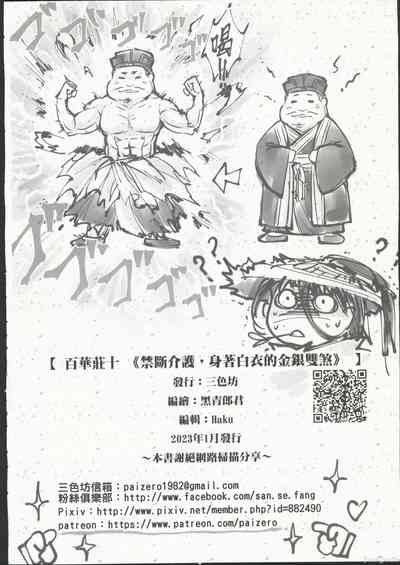 ゴゴゴゴ
喝!!
ゴゴゴゴゴゴ
? ? ? ?
【 百華莊十 《禁斷介護，身著白衣的金銀雙煞》 】
發行：三色坊
編繪：黑青郎君
編輯：Haku
2023年1月發行
～本書謝絕網路掃描分享～
三色坊信箱：paizero1982@gmail.com
粉絲俱樂部：http://www.facebook.com/san.se.fang
Pixiv：http://www.pixiv.net/member.php?id=882490
patreon：https://www.patreon.com/paizero